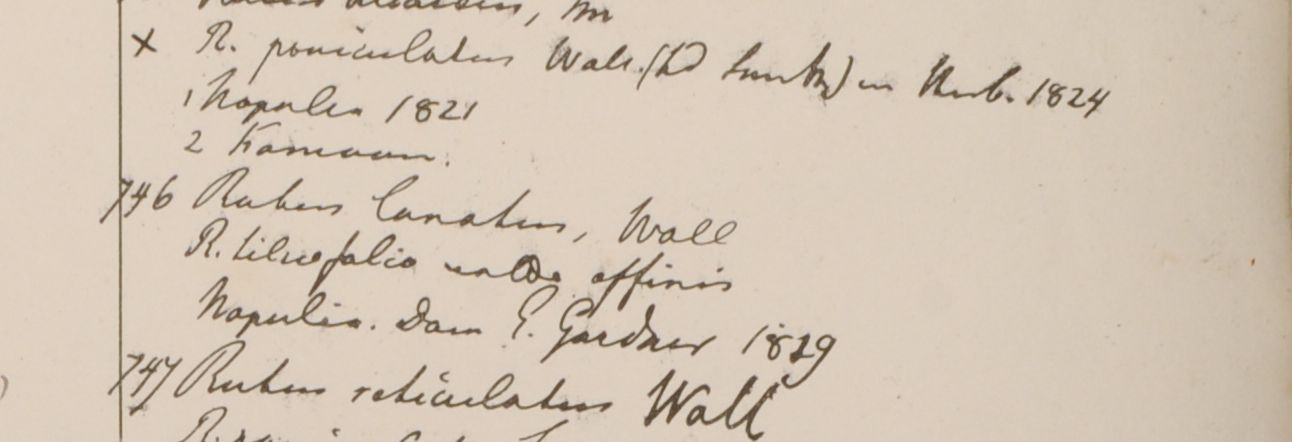 x R. paniculatus Wall. in Herb. 1824
1 Napalia 1821
2 Kamaon.
746 Rubus lanatus, Wall
R. tiliaefolio valde affinis
Napalia. Dom E. Gardner 1819
747 Rubus reticulatus Wall